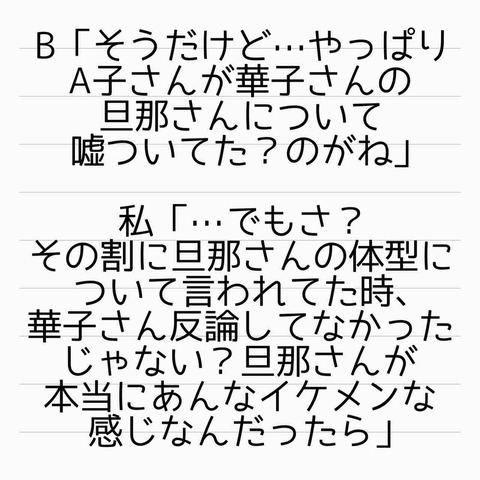 B「そうだけど…やっぱり
A子さんが華子さんの
旦那さんについて
嘘ついてた？のがね」
私「…でもさ？
その割に旦那さんの体型に
ついて言われてた時、
華子さん反論してなかった
じゃない？旦那さんが
本当にあんなイケメンな
感じなんだったら」